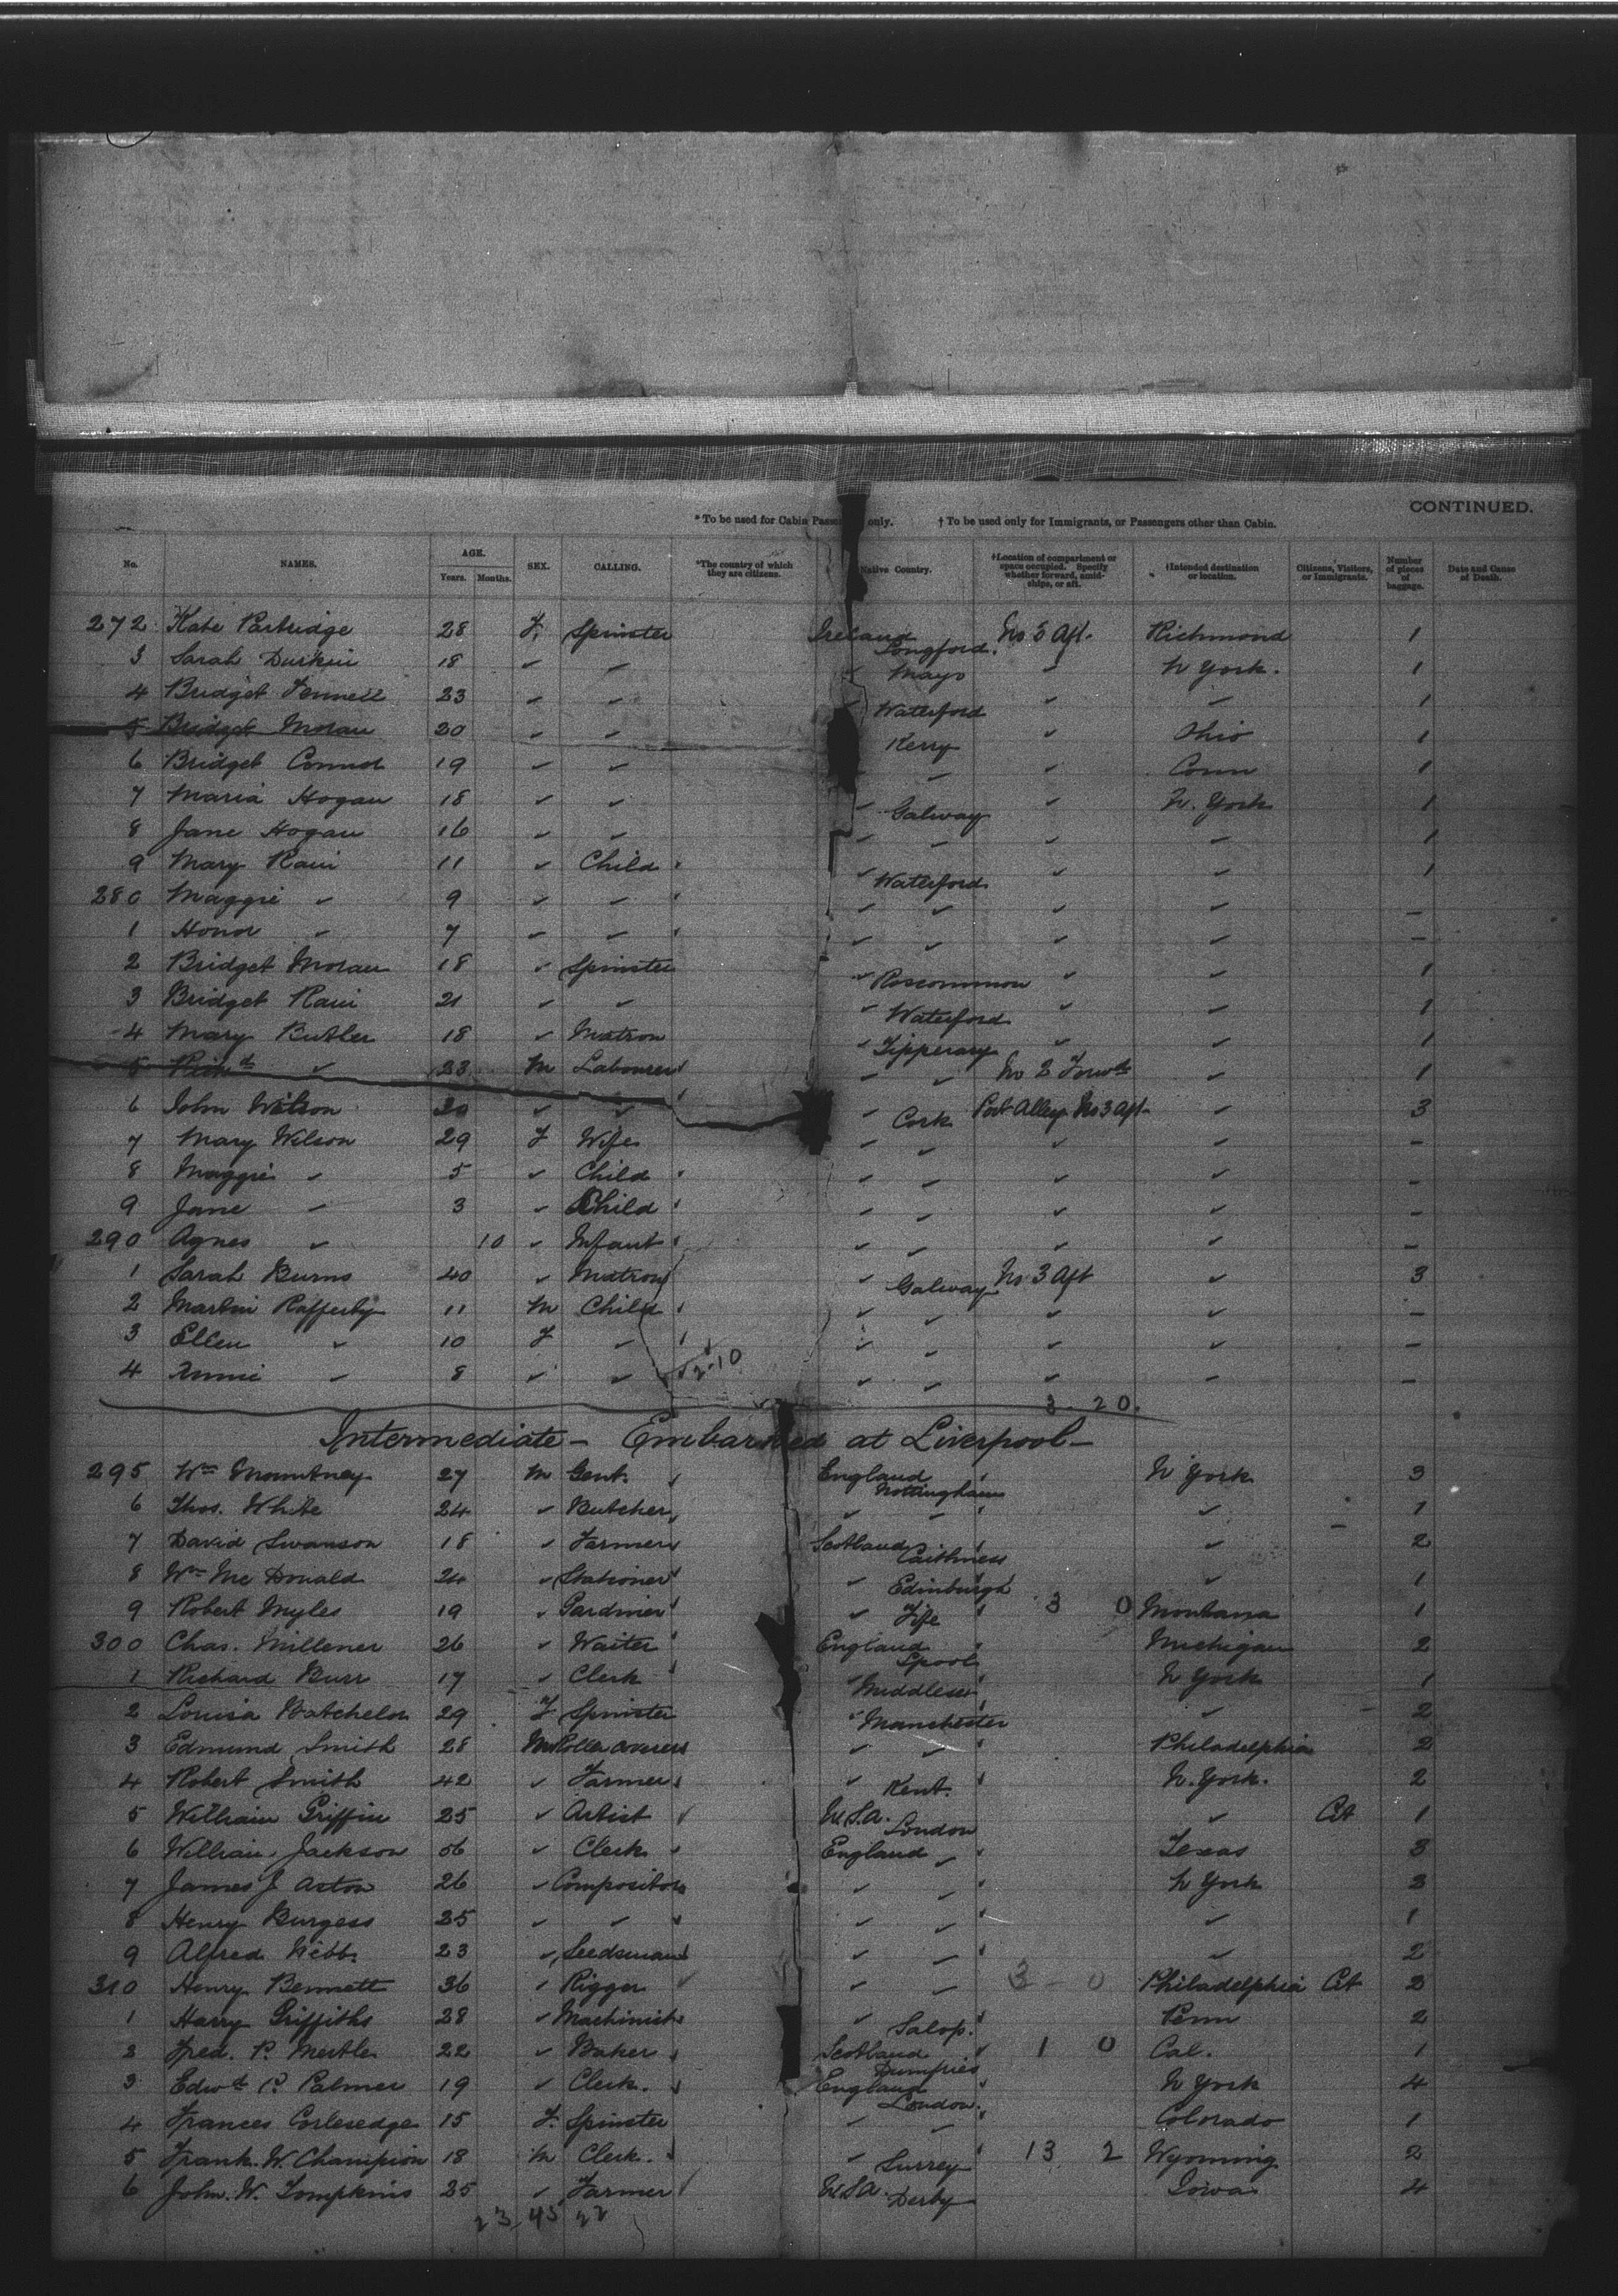 CONTINUED.
* To be used for Cabin Passengers only. † To be used only for Immigrants, or Passengers other than Cabin.
No. NAMES. AGE. Years. Months. SEX. CALLING. *The country of which they are citizens. Native Country. †Location of compartment or space occupied. Specify whether forward, amidships, or aft. †Intended destination or location. Citizens, Visitors, or Immigrants. Number of pieces of baggage. Date and Cause of Death.
272 Kate Partridge 28 F. Spinster Ireland Longford. No 3 Aft. Richmond 1
3 Sarah Durkin 18 " " " Mayo " N York. 1
4 Bridget Fennell 23 " " " Waterford " " 1
5 Bridget Moran 20 " " Kerry " Ohio 1
6 Bridget Connor 19 " " " " Conn 1
7 Maria Hogan 18 " " " Galway " N. York 1
8 Jane Hogan 16 " " " " " " 1
9 Mary Raui 11 " Child " Waterford " " 1
280 Maggie " 9 " " " " " " –
1 Honor " 7 " " " " " " –
2 Bridget Moran 18 " Spinster " Roscommon " " 1
3 Bridget Raui 21 " " " Waterford " " 1
4 Mary Butler 18 " Matron " Tipperary " " 1
5 Richd " 23 M Labourer " " No 2 Forwd " 1
6 John Wilson 30 " " " Cork Port Alley No 3 Aft " 3
7 Mary Wilson 29 F Wife " " " " –
8 Maggie " 5 " Child " " " " –
9 Jane " 3 " Child " " " " –
290 Agnes " 10 " Infant " " " " –
1 Sarah Burns 40 " Matron " Galway No 3 Aft " 3
2 Martin Rafferty 11 M Child " " " " –
3 Ellen " 10 F " " " " " –
4 Annie " 8 " " " " " " –
12-10
3-20.
Intermediate – Embarked at Liverpool –
295 Wm Mountney 27 M Gent. England Nottingham N York 3
6 Thos. White 24 " Butcher " " " 1
7 David Swanson 18 " Farmer Scotland Caithness " 2
8 Wm Mc Donald 24 " Stationer " Edinburgh " 1
9 Robert Myles 19 " Gardnier " Fife 3 0 Montana 1
300 Chas. Millener 26 " Waiter England Lpool Michigan 2
1 Richard Burr 17 " Clerk " Middlesex N York 1
2 Louisa Batchelor 29 F Spinster " Manchester " 2
3 Edmund Smith 28 M Roller coverer " " Philadelphia 2
4 Robert Smith 42 " Farmer " Kent. N. York. 2
5 William Griffin 25 " Artist U.S.A. London " Cit 1
6 William Jackson 56 " Clerk England " Texas 3
7 James J Acton 26 " Compositor " " N York 3
8 Henry Burgess 25 " " " " " 1
9 Alfred Webb. 23 " Seedsman " " " 2
310 Henry Bennett 36 " Rigger " " 3 – 0 Philadelphia Cit 2
1 Harry Griffiths 28 " Machinist " Salop. Penn 2
2 Fred. P. Mertle 22 " Baker Scotland Dumfries 1 0 Cal. 1
3 Edwd P. Palmer 19 " Clerk. England London. N York 4
4 Frances Corleredge 15 F. Spinster " " Colorado 1
5 Frank. W. Champion 18 M Clerk. " Surrey 13 2 Wyoming 2
6 John. W. Tompkins 25 " Farmer U.S.A. Derby Iowa 4
23 45 22